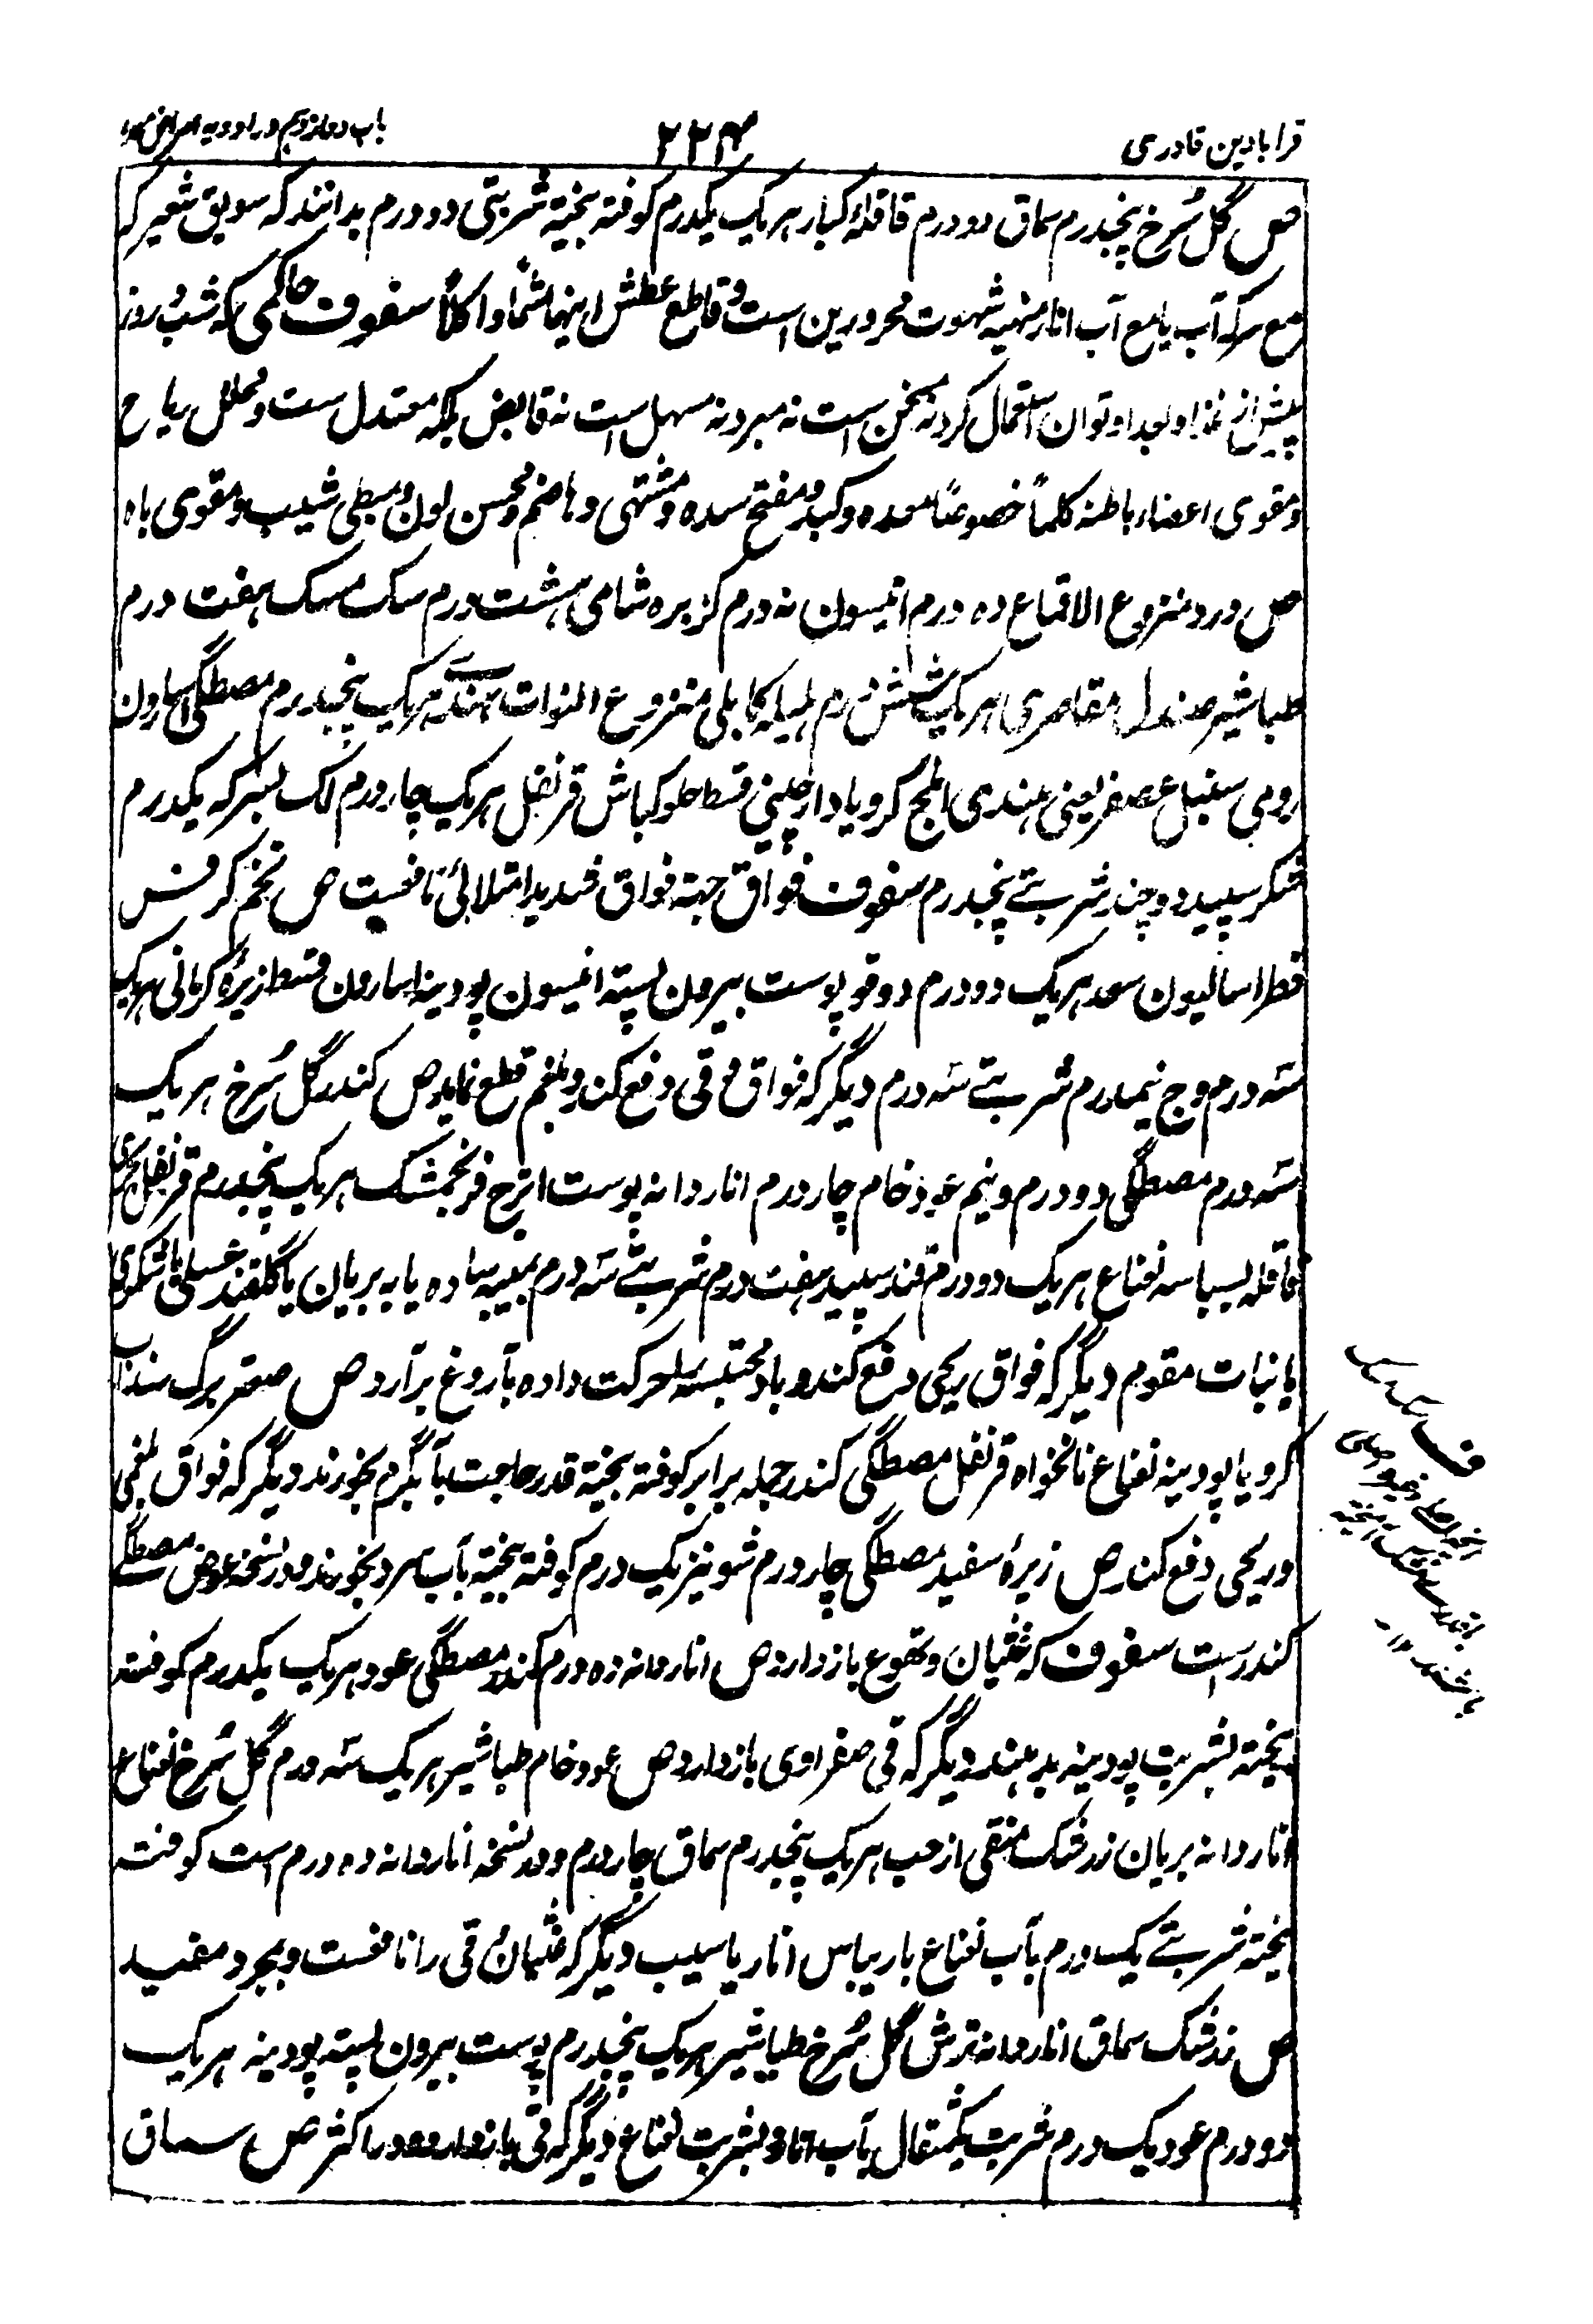 قرابادین قادری
۲۲۴
باب دوازدهم در ادویه امراض معده
ص گل سُرخ پنجدرم سماق دودرم قاقلهٔ کبار هریک یکدرم کوفته بیخته شربتی دودرم بدانند که سویق شعیر که
مع سرکه آب یا مع آب انار منبه شهوت محرورین است و قاطع عطش اینها شماً و اکلاً سفوف حاکمی که شب و روز
پیش از غذا و بعد او توان استعمال کرد نه مسخن است نه مبرد نه مسهل است نه قابض بلکه معتدل ست و محلل ریاح
و مقوی اعضاء باطنه کلماً خصوصاً معده و کبد و مفتح سده و مشتهی و هاضم و محسن لون و مبطی شیب و مقوی باه
ص ورد منزوع الاقماع ده درم انیسون نه درم کزبره شامی هشت درم سک مسک هفت درم
طباشیر صندل مقاصری هریک شش درم هلیله کابلی منزوع النوات هریک پنجدرم مصطگی اسارون
رومی سنبل عصفر یعنی هندی املج کرویا دارچینی قسط حلو کباش قرنفل هریک چار درم لک بسرکه یکدرم
شکر سپید دوچند شربتے پنجدرم سفوف فواق جهة فواق شدید امتلائی نافعست ص تخم کرفس
فطراسالیون سعد هریک دودرم دوقو پوست بیرون پسته انیسون پودینه اسارون قسط زیرهٔ کرمانی هریک
سَه درم وج نیمدرم شربتے سَه درم دیگر که فواق و قی دفع کند و بلغم قطع نماید ص کندر گل سُرخ هریک
سَه درم مصطگی دودرم و نیم عود خام چار درم انار دانه پوست اترج فرنجمشک هریک پنجدرم قرنفل
قاقله بسباسه نعناع هریک دودرم قند سپید هفت درم شربتے سَه درم بمیبه ساده یا به بریان یا گلقند عسلی یا شکری
یا نبات مقوم دیگر که فواق ریحی دفع کند و باد محتبسه را حرکت داده بآروغ برآرد ص صعتر برگ سداب
کرویا پودینه نعناع نانخواه قرنفل مصطگی کندر جمله برابر کوفته بیخته قدر حاجت بآب گرم بخورند دیگر که فواق بلغمی
و ریحی دفع کند ص زیرهٔ سفید مصطگی چار درم شونیز یک درم کوفته بیخته بآب سرد بخورند و در نسخه عوض مصطگے
کندرست سفوف که غثیان و تهوع باز دارد ص انار دانه ده درم کندر مصطگی عود هریک یکدرم کوفته
بیخته بشربت پودینه بدهند دیگر که قی صفراوی باز دارد ص عود خام طباشیر هریک سَه درم گل سُرخ نعناع
انار دانه بریان زرشک منقی از حب هریک پنجدرم سماق چار درم و در نسخه انار دانه ده درم است کوفته
بیخته شربتے یک درم بآب نعناع یا ریباس انار یا سیب دیگر که غثیان و قی را نافعست و مجرد مفید
ص زرشک سماق انار دانه ترش گل سُرخ طباشیر هریک پنجدرم پوست بیرون پسته پودینه هریک
دودرم عود یک درم شربت یکمثقال بآب انار و بشربت نعناع دیگر که قی باز دارد و در اکثر ص سماق